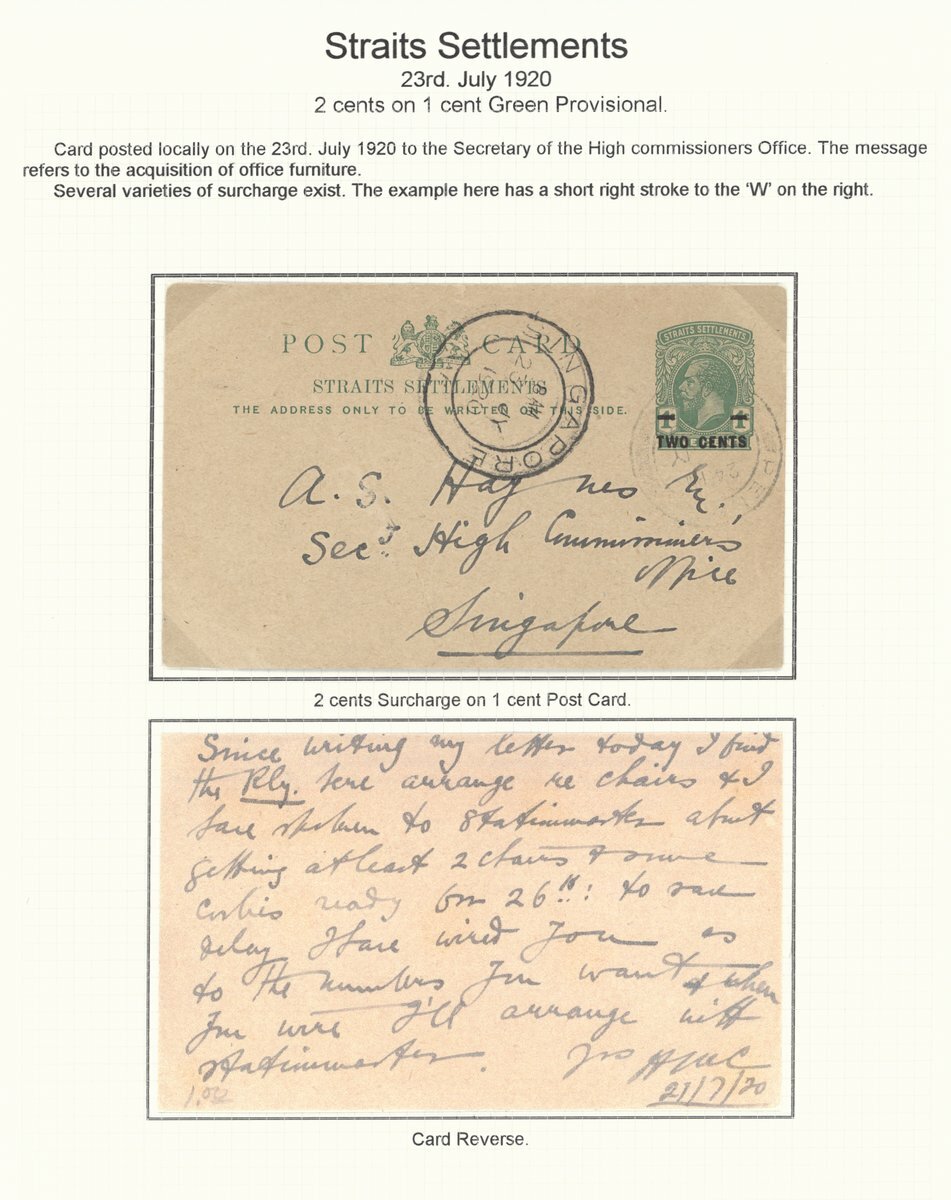 Straits Settlements
23rd. July 1920
2 cents on 1 cent Green Provisional.
Card posted locally on the 23rd. July 1920 to the Secretary of the High commissioners Office. The message
refers to the acquisition of office furniture.
Several varieties of surcharge exist. The example here has a short right stroke to the 'W' on the right.
POST CARD
STRAITS SETTLEMENTS
THE ADDRESS ONLY TO BE WRITTEN ON THIS SIDE.
SINGAPORE
8 AM
23 JY
1920
STRAITS SETTLEMENTS
TWO CENTS
24
A. S. Haynes Esq.,
Secy. High Commissioner's
Office
Singapore
2 cents Surcharge on 1 cent Post Card.
Since writing my letter today I find
the Rly. here arrange re chairs & I
have spoken to Stationmaster about
getting at least 2 chairs & some
ready for 26th: to save
delay I have wired you as
to the numbers you want & when
you wire I'll arrange with
stationmaster. Yrs
21/7/20
Card Reverse.